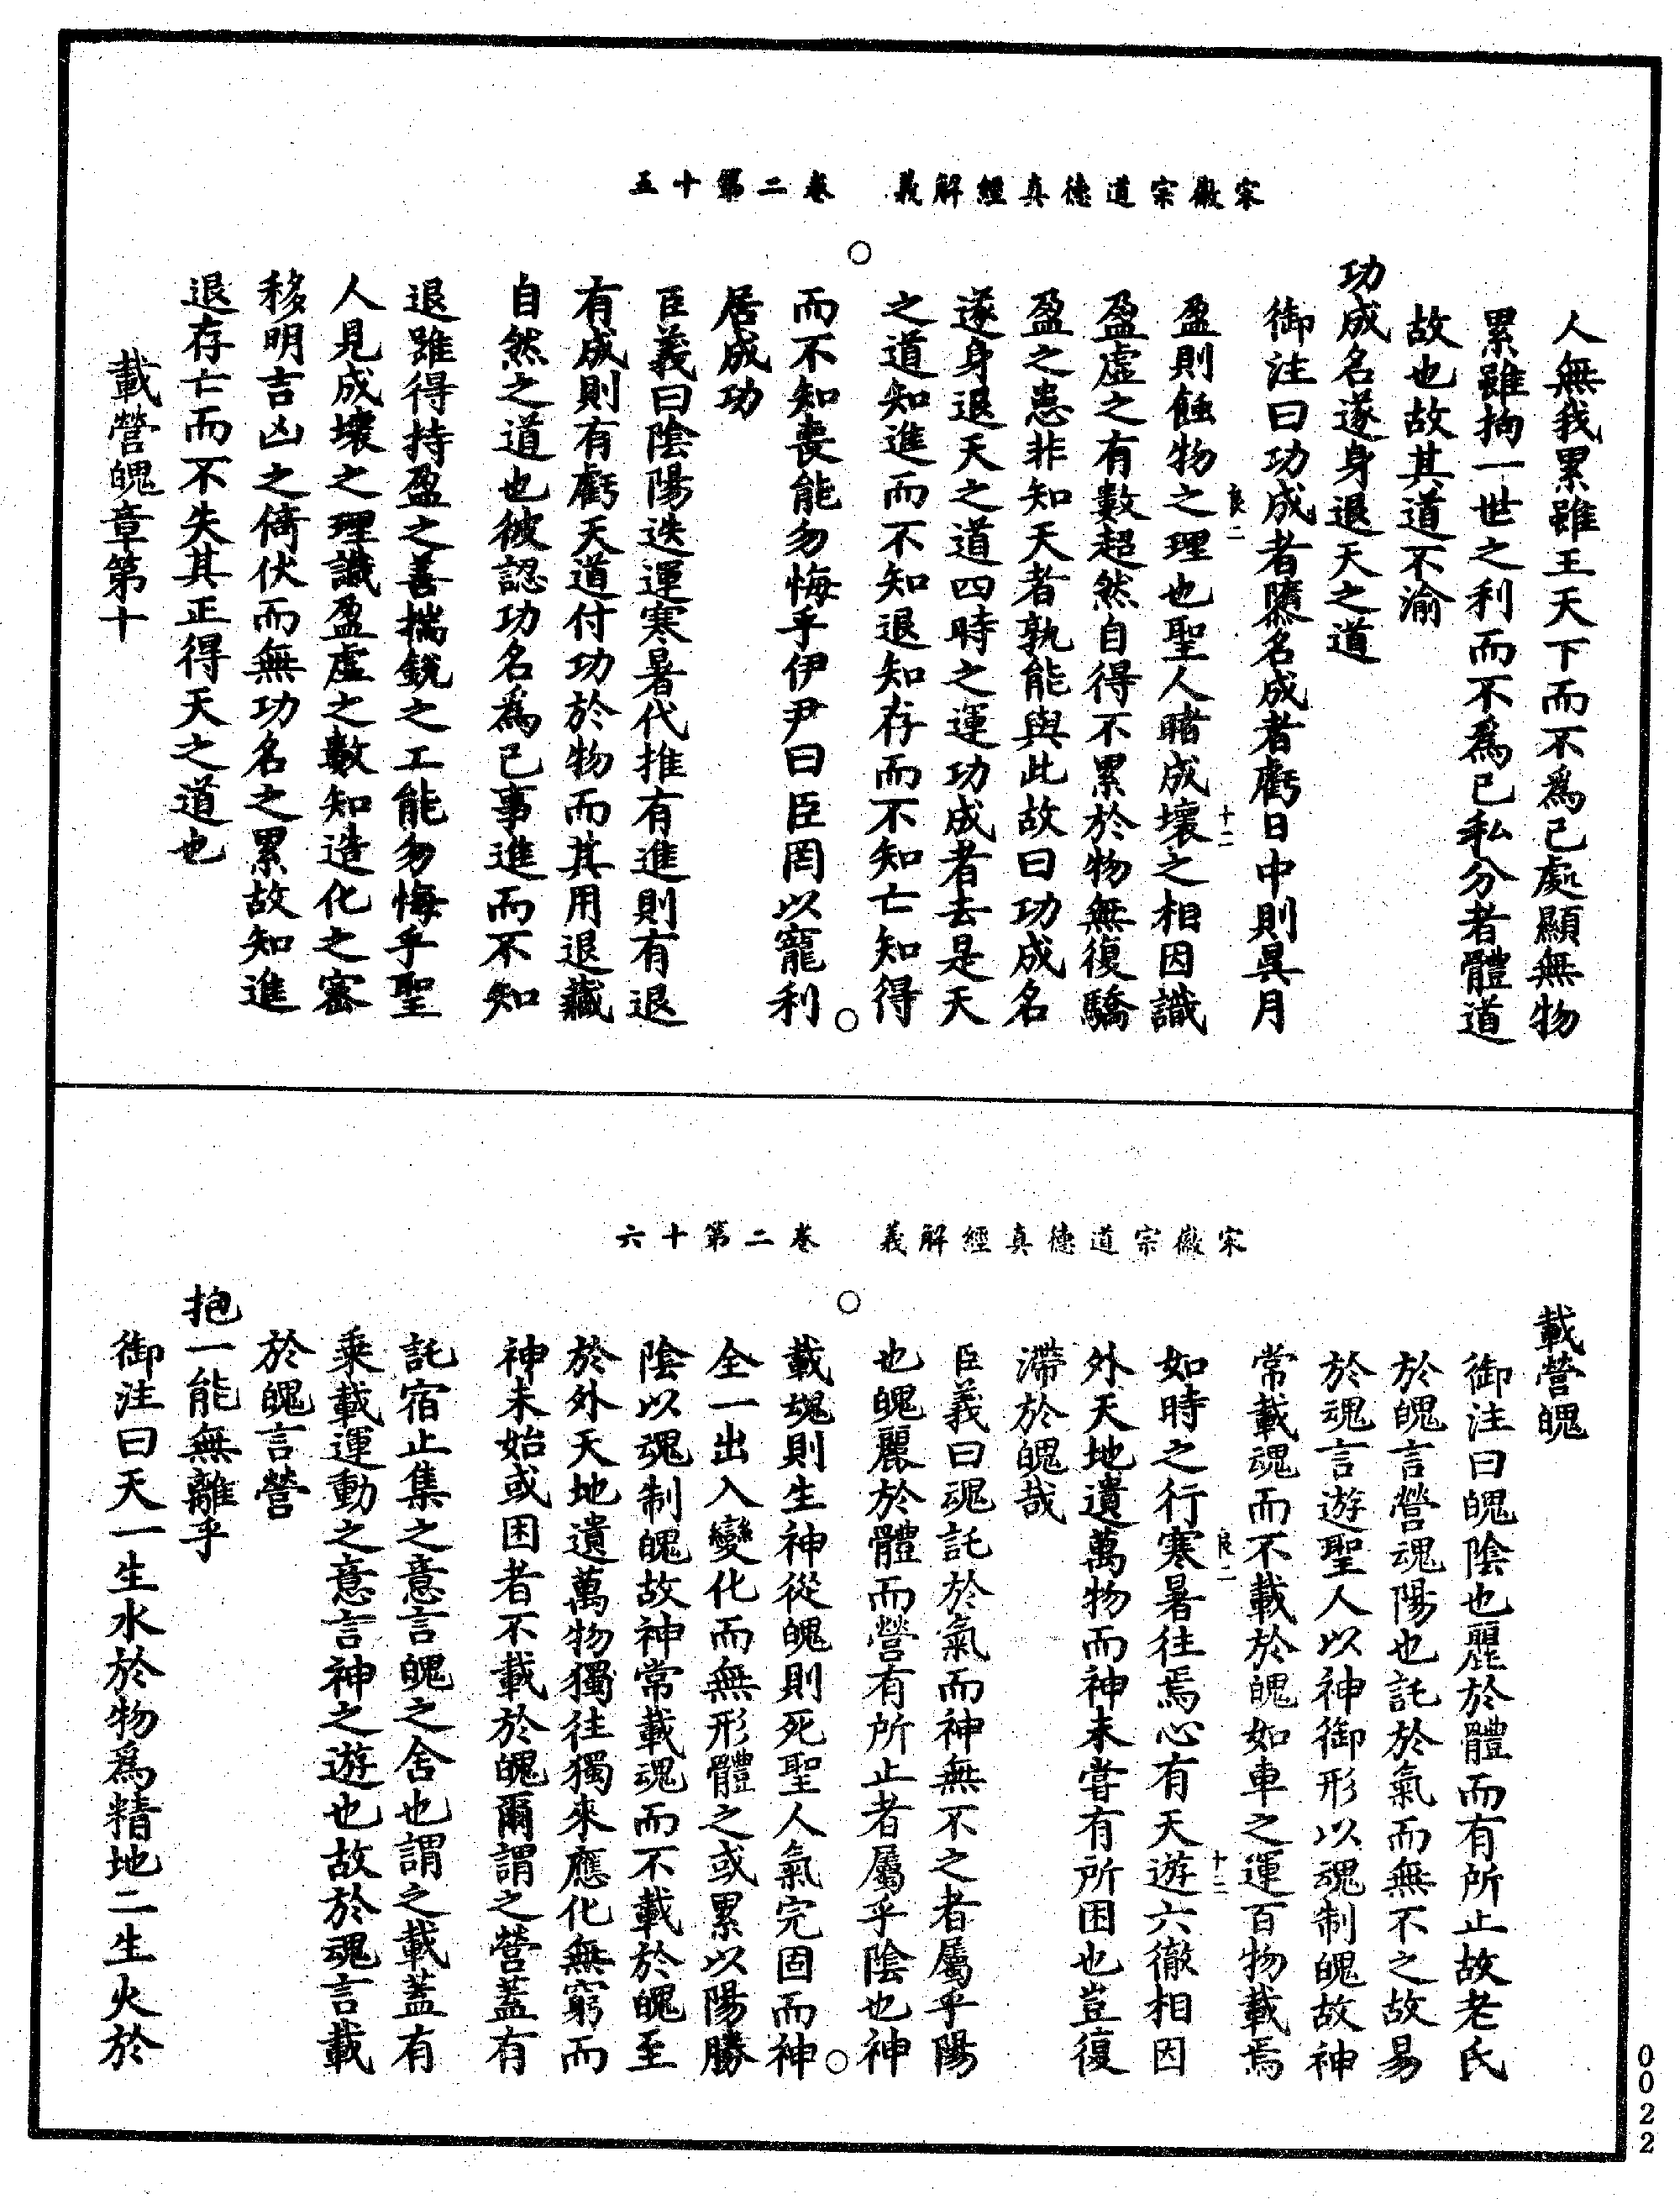 宋徽宗道德真經解義　卷二第十五
人無我累雖王天下而不為己處顯無物
累雖拘一世之利而不為己私分者體道
故也故其道不渝
功成名遂身退天之道
御注曰功成者隳名成者虧日中則昃月
盈則蝕物之理也聖人睹成壞之相因識
盈虛之有數超然自得不累於物無復驕
盈之患非知天者孰能與此故曰功成名
遂身退天之道四時之運功成者去是天
之道知進而不知退知存而不知亡知得
而不知喪能勿悔乎伊尹曰臣罔以寵利
居成功
臣義曰陰陽迭運寒暑代推有進則有退
有成則有虧天道付功於物而其用退藏
自然之道也彼認功名為己事進而不知
退雖得持盈之善揣銳之工能勿悔乎聖
人見成壞之理識盈虛之數知造化之密
移明吉凶之倚伏而無功名之累故知進
退存亡而不失其正得天之道也
載營魄章第十
良二
十二
宋徽宗道德真經解義　卷二第十六
載營魄
御注曰魄陰也麗於體而有所止故老氏
於魄言營魂陽也託於氣而無不之故易
於魂言遊聖人以神御形以魂制魄故神
常載魂而不載於魄如車之運百物載焉
如時之行寒暑往焉心有天遊六徹相因
外天地遺萬物而神未嘗有所困也豈復
滯於魄哉
臣義曰魂託於氣而神無不之者屬乎陽
也魄麗於體而營有所止者屬乎陰也神
載魂則生神從魄則死聖人氣完固而神
全一出入變化而無形體之或累以陽勝
陰以魂制魄故神常載魂而不載於魄至
於外天地遺萬物獨往獨來應化無窮而
神未始或困者不載於魄爾謂之營蓋有
託宿止集之意言魄之舍也謂之載蓋有
乘載運動之意言神之遊也故於魂言載
於魄言營
抱一能無離乎
御注曰天一生水於物為精地二生火於
良二
十二
0022